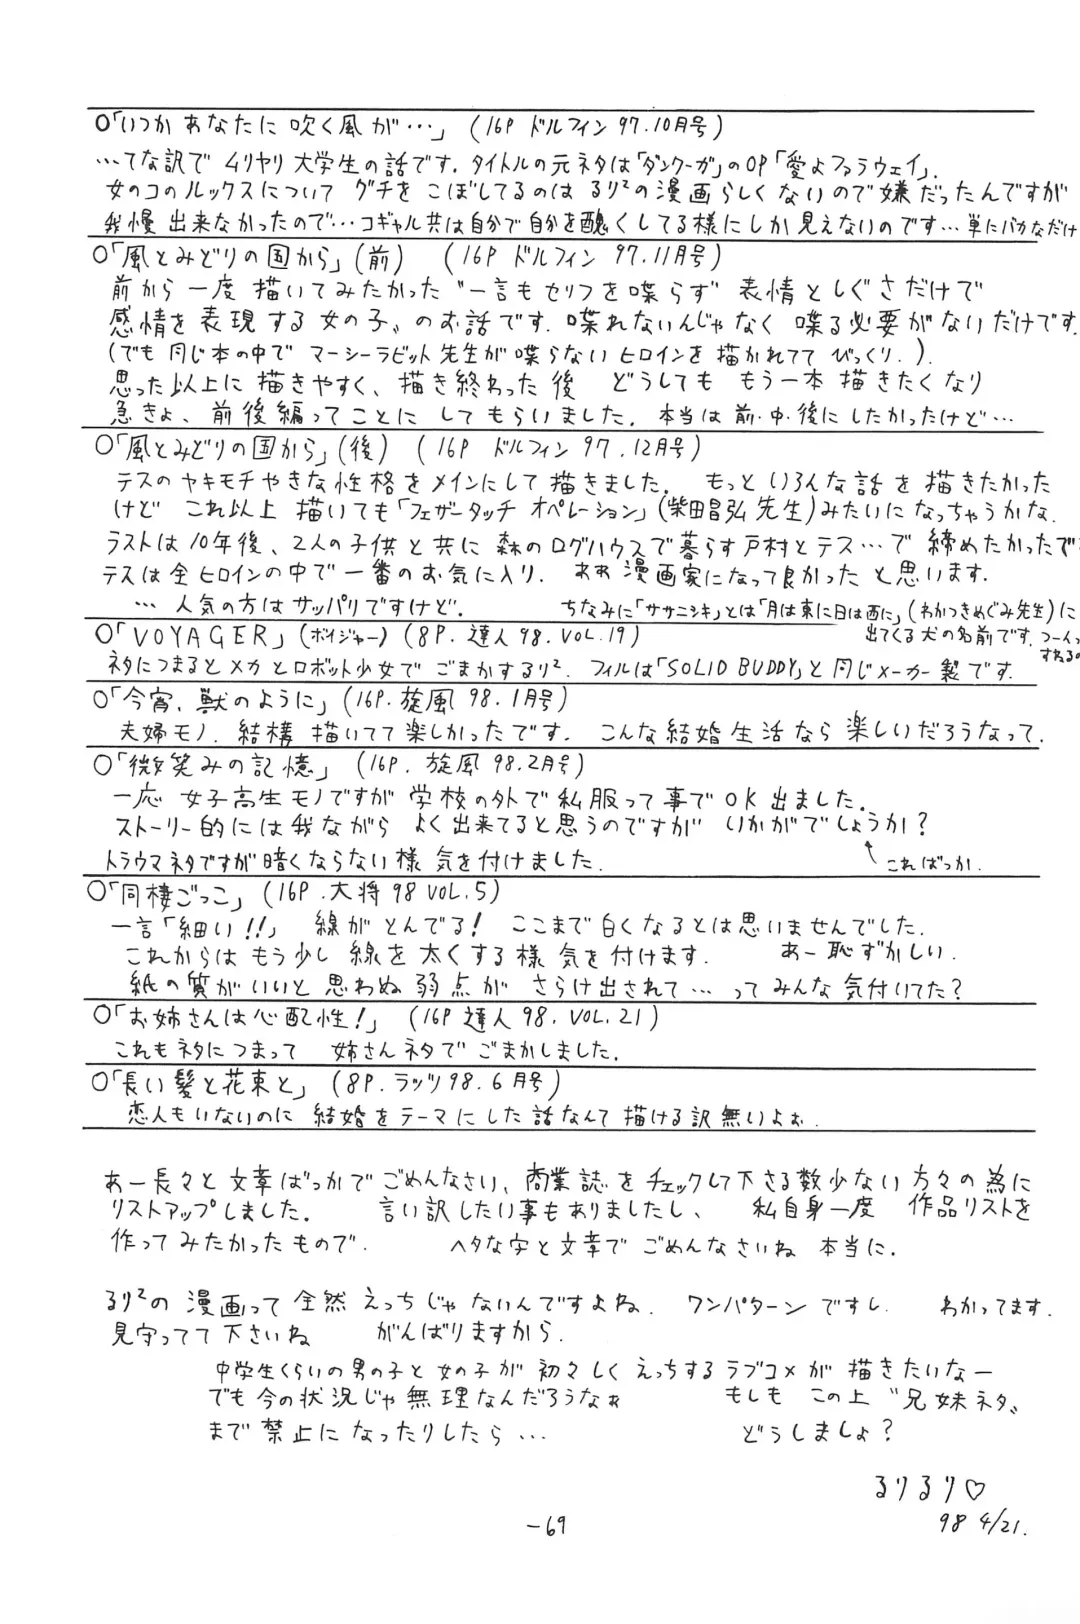 ○「いつか あなたに 吹く風が…」 (16P ドルフィン 97.10月号)
…てな訳で ムリヤリ 大学生の話です。タイトルの元ネタは「ダンクーガ」のOP「愛よファラウェイ」.
女のコのルックスについて グチを こぼしてるのは るり²の漫画らしくないので嫌だったんですが
我慢 出来なかったので…コギャル共は自分で自分を醜くしてる様にしか見えないのです…単にバカなだけ
○「風とみどりの国から」(前) (16P ドルフィン 97.11月号)
前から 一度 描いてみたかった〝一言もセリフを喋らず 表情としぐさだけで
感情を 表現 する 女の子〟のお話です. 喋れないんじゃなく 喋る必要がないだけです.
(でも 同じ本の中で マーシーラビット先生が喋らない ヒロインを 描かれてて びっくり.).
思った以上に 描きやすく、描き終わった 後 どうしても もう一本 描きたくなり
急きょ、前後編ってことに してもらいました. 本当は 前・中・後にしたかったけど…
○「風とみどりの国から」(後) (16P ドルフィン 97.12月号)
テスの ヤキモチやきな性格をメインにして描きました. もっと いろんな話を 描きたかった
けど これ以上 描いても「フェザータッチ オペレーション」(柴田昌弘先生)みたいになっちゃうかな.
ラストは 10年後、2人の子供と共に 森のログハウスで暮らす戸村とテス…で 締めたかったで
テスは全ヒロインの中で 一番のお気に入り. ああ 漫画家になって良かった と思います.
… 人気の方は サッパリですけど. ちなみに「ササニシキ」とは「月は東に日は西に」(わかつきめぐみ先生)に
出てくる犬の名前です.
○「VOYAGER」(ボイジャー) (8P. 達人 98. VOL.19)
ネタにつまると メカとロボット少女で ごまかするり². フィルは「SOLID BUDDY」と同じメーカー製です.
○「今宵、獣のように」(16P. 旋風 98.1月号)
夫婦モノ. 結構 描いてて楽しかったです. こんな結婚生活なら 楽しいだろうなって.
○「微笑みの記憶」 (16P. 旋風 98.2月号)
一応 女子高生モノですが 学校の外で私服って事で OK出ました.
ストーリー的には我ながら よく出来てると思うのですが いかがでしょうか?
トラウマネタですが暗くならない様 気を付けました. こればっか.
○「同棲ごっこ」(16P. 大将 98 VOL.5)
一言「細い!!」 線が とんでる! ここまで白くなるとは思いませんでした.
これからは もう少し 線を 太くする様 気を付けます. あー恥ずかしい.
紙の質がいいと 思わぬ弱点が さらけ出されて… ってみんな 気付いてた?
○「お姉さんは心配性!」 (16P 達人 98. VOL.21)
これもネタにつまって 姉さんネタで ごまかしました.
○「長い髪と花束と」 (8P. ラッツ 98.6月号)
恋人もいないのに 結婚をテーマにした 話なんて 描ける訳 無いよぉ.
あー長々と文章ばっかでごめんなさい、商業誌をチェックして下さる数少ない 方々の為に
リストアップしました. 言い訳したい事もありましたし、 私自身一度 作品リストを
作ってみたかったもので. ヘタな字と文章で ごめんなさいね 本当に.
るり²の 漫画って 全然 えっちじゃないんですよね. ワンパターンですし. わかってます.
見守ってて下さいね がんばりますから.
中学生くらいの男の子と女の子が 初々しく えっちする ラブコメが 描きたいなー
でも今の状況じゃ無理なんだろうなぁ もしも この上〝兄妹ネタ〟
まで 禁止に なったりしたら… どうしましょ?
るりるり♡
98 4/21.
-69